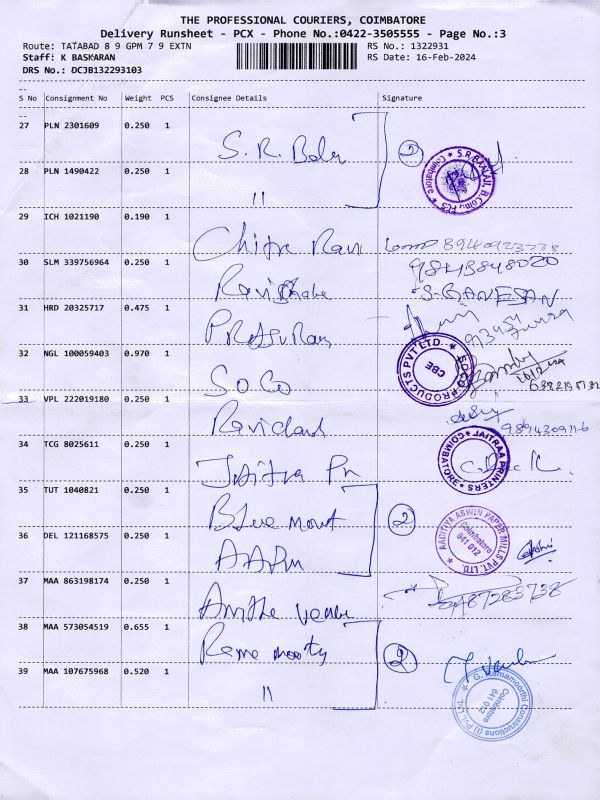 THE PROFESSIONAL COURIERS, COIMBATORE
Delivery Runsheet - PCX - Phone No.:0422-3505555 - Page No.:3
Route: TATABAD 8 9 GPM 7 9 EXTN
RS No.: 1322931
Staff: K BASKARAN
RS Date: 16-Feb-2024
DRS No.: DCJB132293103
S No Consignment No Weight PCS Consignee Details Signature
27 PLN 2301609 0.250 1 S. R. 2
28 PLN 1490422 0.250 1 11
S.R. BALAJI, B.Com., FCS
Coimbatore
29 ICH 1021190 0.190 1 Chitra Ravi
30 SLM 339756964 0.250 1 9843848020
S. GANESAN
31 HRD 20325717 0.475 1
32 NGL 100059403 0.970 1 SOCO
SOCO PRODUCTS PVT LTD.
CBE
33 VPL 222019180 0.250 1 9894309116
34 TCG 8025611 0.250 1 Jaitra Pn
JAITRAA PRINTERS
COIMBATORE
35 TUT 1040821 0.250 1 Blue mount 2
36 DEL 121168575 0.250 1 AAPM
AADITIYA ASWIN PAPER MILLS PVT. LTD.
Coimbatore
641 012
37 MAA 863198174 0.250 1
38 MAA 573054519 0.655 1 Rama moorty 2
39 MAA 107675968 0.520 1 11
G. Ramamoorthi Constructions (I) Pvt. Ltd.
Coimbatore
641 012